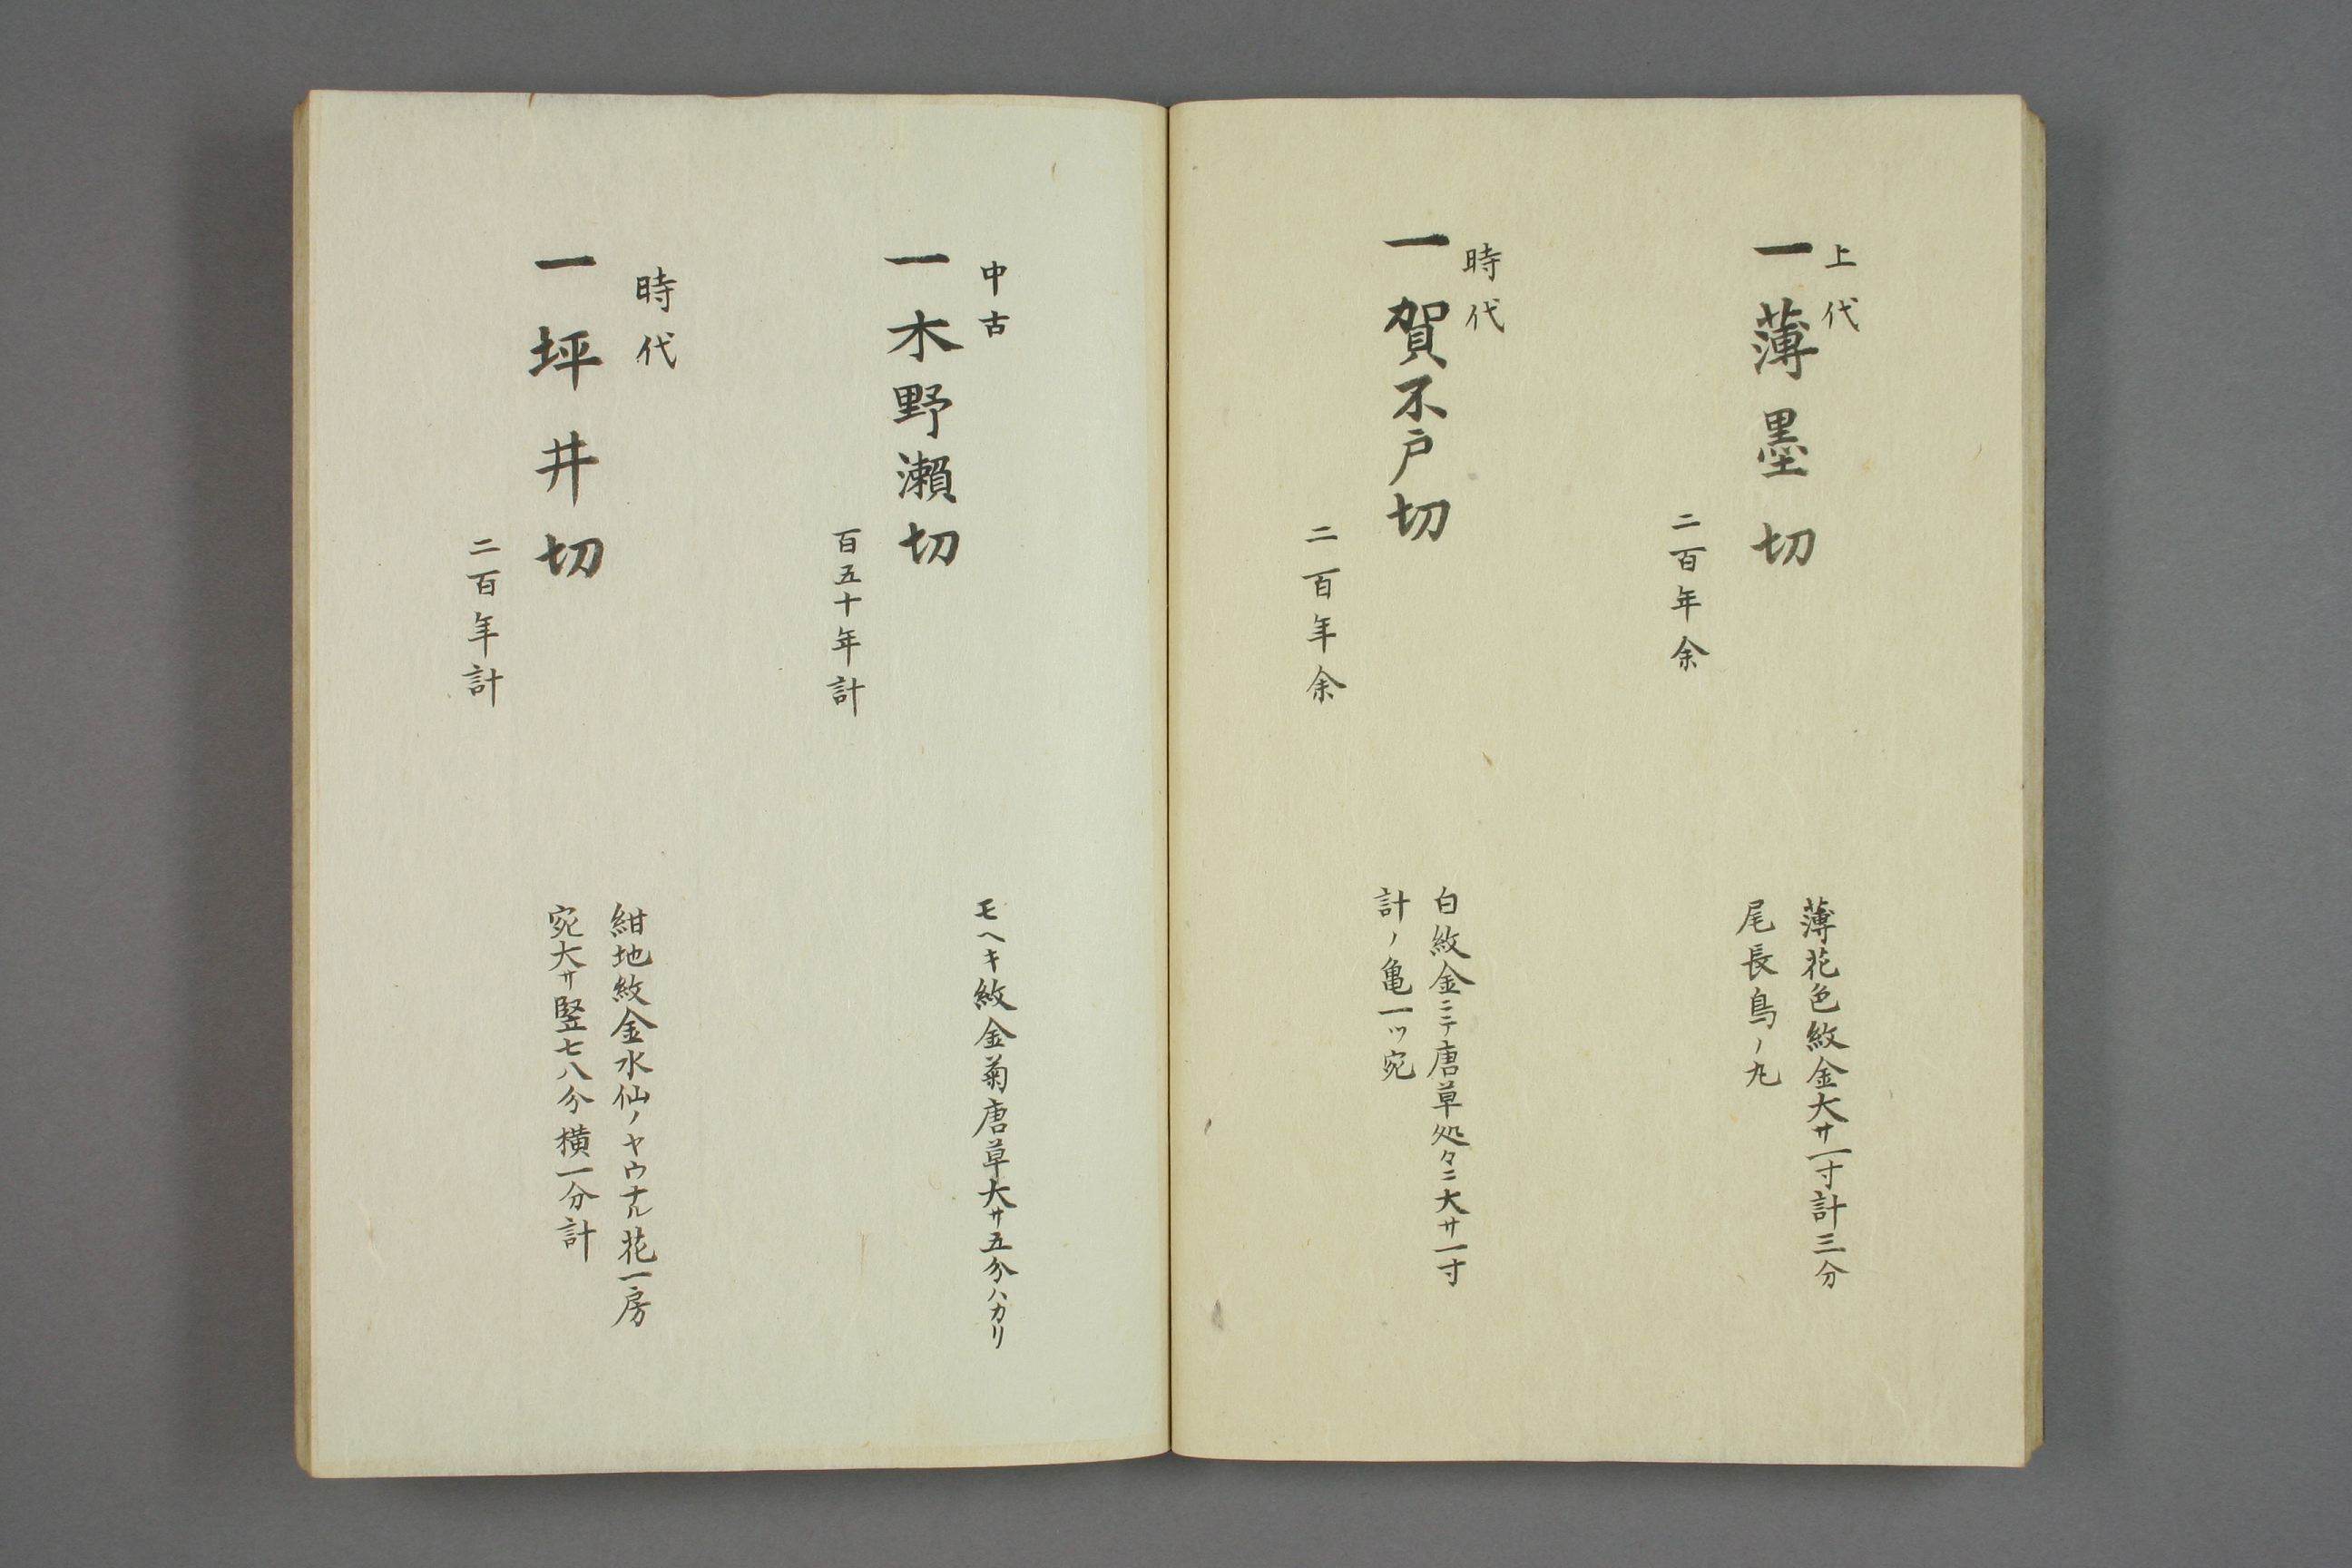 上代
一薄墨切
二百年余
薄花色紋金大サ一寸計三分
尾長鳥ノ丸
時代
一賀不戸切
二百年余
白紋金ニテ唐草処々ニ大サ一寸
計ノ亀一ツ宛
中古
一木野瀬切
百五十年計
モヘキ紋金菊唐草大サ五分ハカリ
時代
一坪井切
二百年計
紺地紋金水仙ノヤウナル花一房
宛大サ竪七八分横一分計